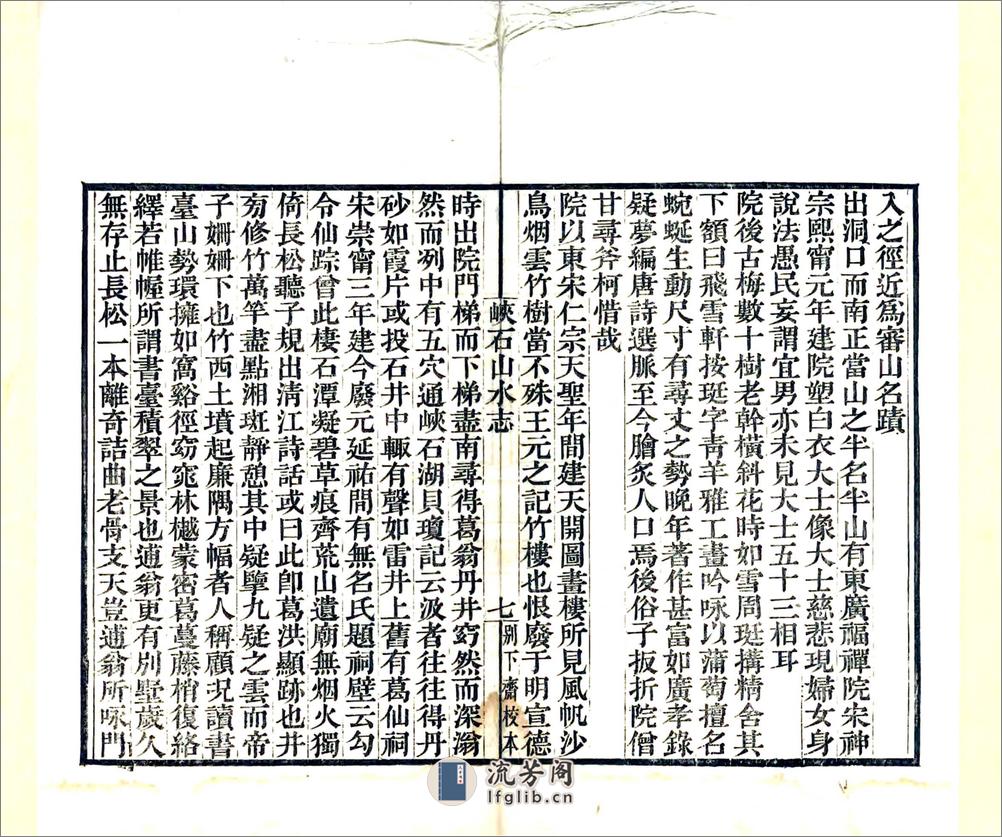 入之徑近爲審山名蹟
出洞口而南正當山之半名半山有東廣福禪院宋神
宗熙甯元年建院塑白衣大士像大士慈悲現婦女身
說法愚民妄謂宜男亦未見大士五十三相耳
院後古梅數十樹老幹橫斜花時如雪周珽搆精舍其
下額曰飛雪軒按珽字靑羊雅工畫吟咏以蒲萄擅名
蜿蜒生動尺寸有尋丈之勢晚年著作甚富如廣孝錄
疑夢編唐詩選脈至今膾炙人口焉後俗子扳折院僧
甘尋斧柯惜哉
院以東宋仁宗天聖年間建天開圖畫樓所見風帆沙
鳥烟雲竹樹當不殊王元之記竹樓也恨廢于明宣德
峽石山水志
七
別下齋校本
時出院門梯而下梯盡南尋得葛翁丹井窈然而深滃
然而冽中有五穴通峽石湖貝瓊記云汲者往往得丹
砂如霞片或投石井中輙有聲如雷井上舊有葛仙祠
宋崇甯三年建今廢元延祐間有無名氏題祠壁云勾
令仙踪曾此棲石潭凝碧草痕齊荒山遺廟無烟火獨
倚長松聽子規出淸江詩話或曰此卽葛洪顯跡也井
旁修竹萬竿盡點湘斑靜憩其中疑擥九疑之雲而帝
子姍姍下也竹西土墳起廉隅方幅者人稱顧況讀書
臺山勢環擁如窩谿徑窈窕林樾蒙密葛蔓藤梢復絡
繹若帷幄所謂書臺積翠之景也逋翁更有別墅歲久
無存止長松一本離奇詰曲老骨支天豈逋翁所咏門
流芳阁
lfglib.cn